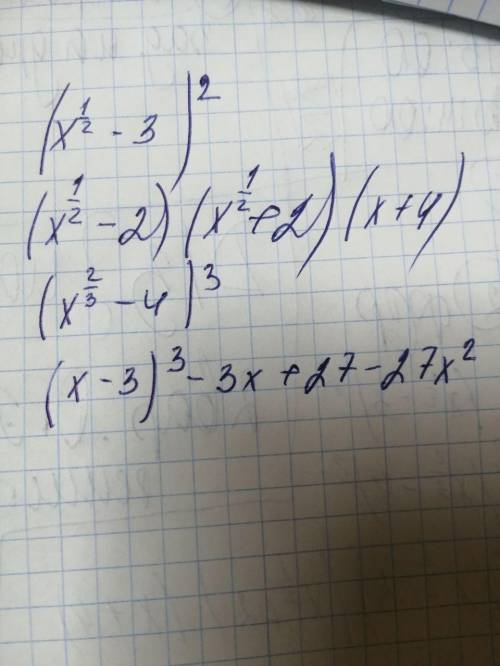 (x^{1/2} - 3)^2
(x^{1/2} - 2)(x^{1/2} + 2)(x + 4)
(x^{2/3} - 4)^3
(x - 3)^3 - 3x + 27 - 27x^2